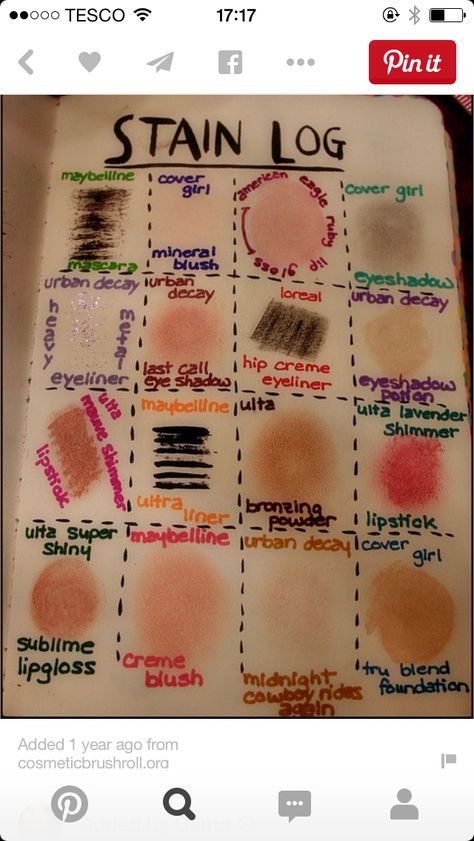 TESCO 17:17
Pin it
STAIN LOG
maybelline
mascara
cover
girl
mineral
blush
american eagle ruby lip gloss
cover girl
eyeshadow
urban decay
heavy metal
eyeliner
urban
decay
last call
eye shadow
loreal
hip creme
eyeliner
urban decay
eyeshadow
potion
ulta
mauve shimmer
lipstick
maybelline
ultra
liner
ulta
bronzing
powder
ulta lavender
shimmer
lipstick
ulta super
shiny
sublime
lipgloss
maybelline
creme
blush
urban decay
midnight
cowboy rides
again
cover girl
tru blend
foundation
Added 1 year ago from
cosmeticbrushroll.org